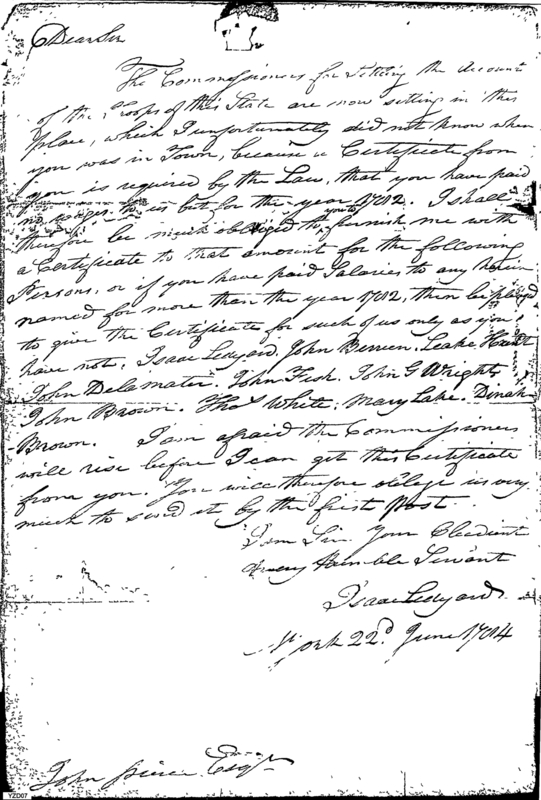 Dear Sir
The Commissioners for settling the Account
of the Troops of this State are now setting in this
place, which I unfortunately did not know when
you was in Town, because a Certificate from
you is required by the Law, that you have paid
no to us but for the year 1782. I shall
therefore be much obliged to you to furnish me with
a Certificate to that amount for the following
Persons, or if you have paid Salaries to any herein
named for more than the year 1782, then be pleased
to give the Certificate for such of us only as you
have not: Isaac Ledyard. John Berrien. Leake Hunt
John Delamater. John Fisk. John G Wright.
John Brown. Thos White. Mary Lake. Dinah
Brown. I am afraid the Commissioners
will rise before I can get this Certificate
from you. You will therefore oblige us very
much to send it by the first Post.
I am Sir Your Obedient
& very Humble Servant
Isaac Ledyard.
N York 22d June 1784
John Pierce Esqr
YZD07